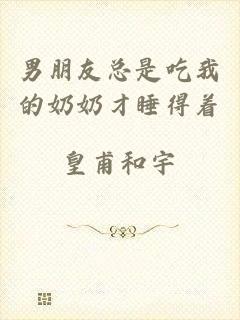 男朋友总是吃我
的奶奶才睡得着
皇甫和宇